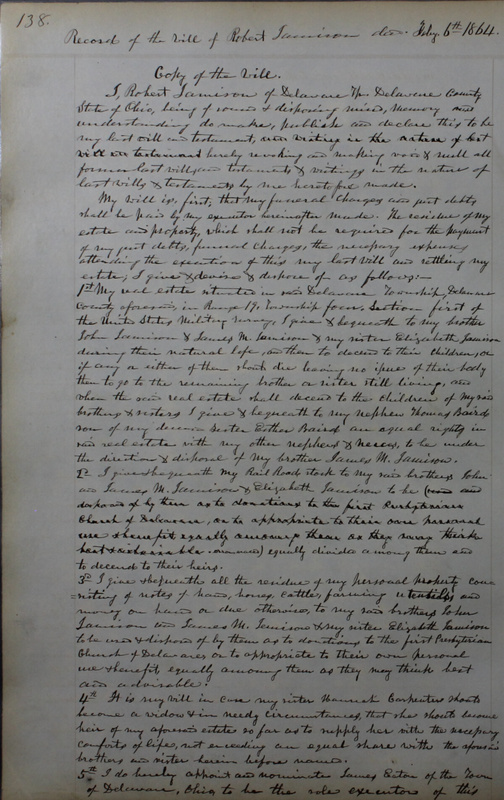 138.
Record of the Will of Robert Jamison dec. Feby 6th 1864.
Copy of the Will.
I, Robert Jamison of Delaware Tp. Delaware County
State of Ohio, being of sound & disposing mind, memory and
understanding do make, publish and declare this to be
my last will and testament, and writing in the nature of last
will and testament hereby revoking and making void & null all
former last wills and testaments & writings in the nature of
last wills & testaments by me heretofore made.
My Will is, first, that my funeral charges and just debts
shall be paid by my executor hereinafter made. The residue of my
estate and property, which shall not be required for the payment
of my just debts, funeral charges, the necessary expenses
attending the execution of this my last Will and settling my
estate; I give & devise & dispose of as follows:—
1st My real estate situated in said Delaware Township, Delaware
County aforesaid, in Range 19, Township four, Section first of
the United States Military survey, I give & bequeath to my brother
John Jamison & James M. Jamison & my sister Elizabeth Jamison
during their natural life, and then to descend to their children, or
if any or either of them should die leaving no issue of their body
then to go to the remaining brother or sister still living, and
when the said real estate shall descend to the children of my said
brothers & sisters I give & bequeath to my nephew Thomas Baird
son of my deceased sister Esther Baird an equal right in
said real estate with my other nephews & nieces, to be under
the direction & disposal of my brother James M. Jamison.
2d I give & bequeath my Rail Road stock to my said brothers John
and James M. Jamison & Elizabeth Jamison to be (used and
disposed of by them as to donations to the first Presbyterian
Church of Delaware, or to appropriate to their own personal
use & benefit equally amongst them as they may think
best & advisable) equally divided among them and
to descend to their heirs.
3d I give & bequeath all the residue of my personal property con-
=sisting of notes of hand, horses, cattle, farming utensils, and
money on hand or due otherwise, to my said brothers John
Jamison and James M. Jamison & my sister Elizabeth Jamison
to be used & disposed of by them as to donations to the first Presbyterian
Church of Delaware, or to appropriate to their own personal
use & benefit, equally among them as they may think best
and advisable.
4th It is my will in case my sister Hannah Carpenter should
become a widow & in needy circumstances, that she should become
heir of my aforesaid estate so far as to supply her with the necessary
comforts of life, not exceeding an equal share with the aforesaid
brothers and sister herein before named.
5th I do hereby appoint and nominate James Eaton of the Town
of Delaware, Ohio, to be the sole executor of this